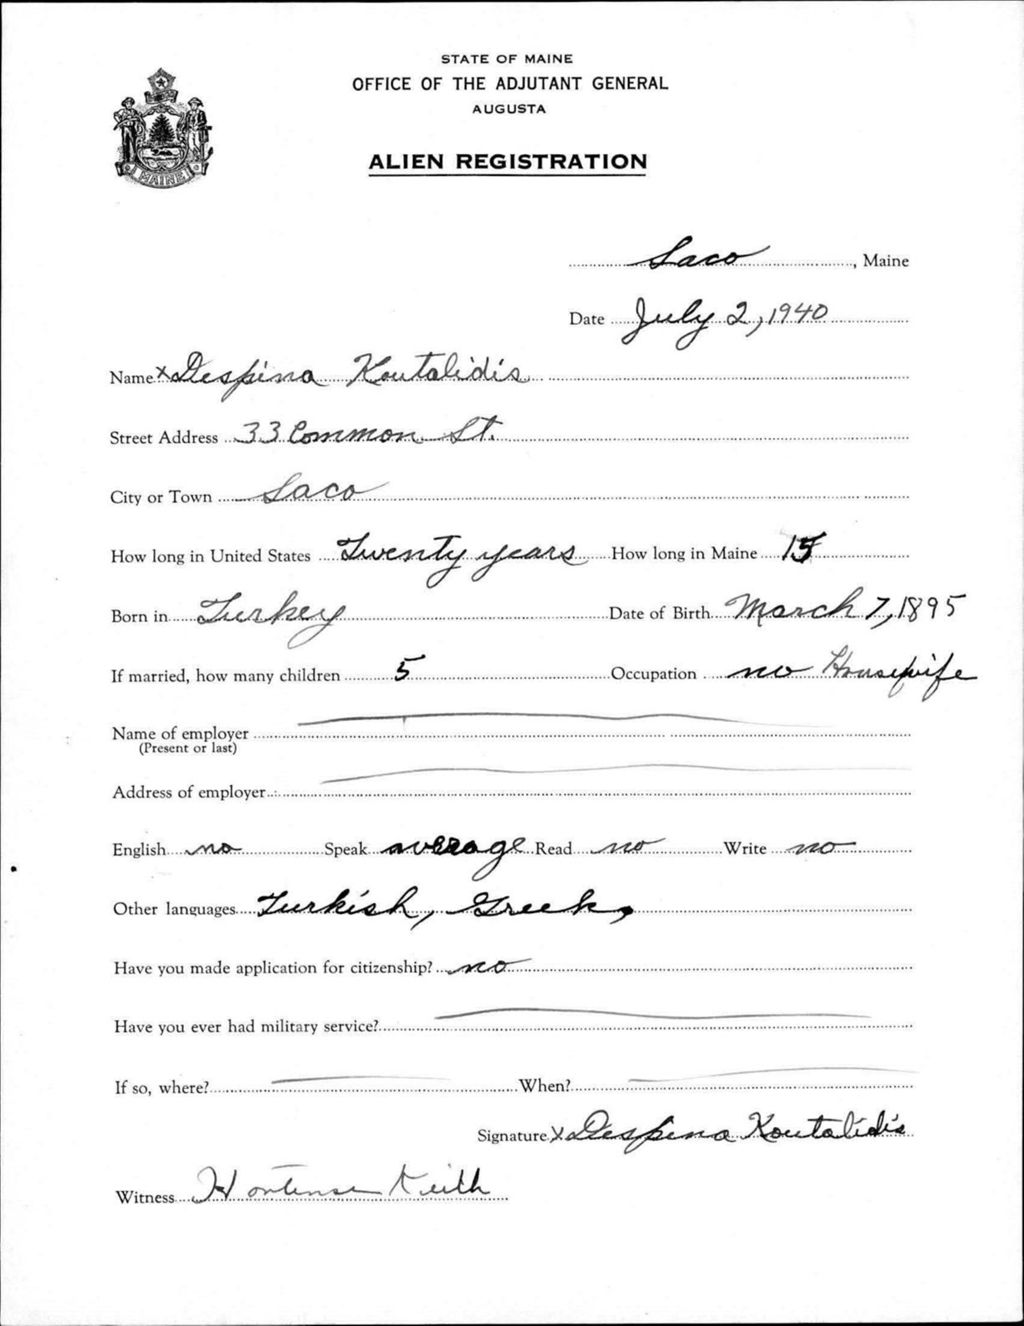 STATE OF MAINE
OFFICE OF THE ADJUTANT GENERAL
AUGUSTA
ALIEN REGISTRATION
MAINE
Saco, Maine
Date July 2, 1940
Name x Despina Koutalidis
Street Address 33 Common St.
City or Town Saco
How long in United States Twenty years How long in Maine 15
Born in Turkey Date of Birth March 7, 1895
If married, how many children 5 Occupation no Housewife
Name of employer
(Present or last)
Address of employer
English no Speak average Read no Write no
Other languages Turkish, Greek,
Have you made application for citizenship? no
Have you ever had military service?
If so, where? When?
Signature x Despina Koutalidis
Witness Hortense Keith